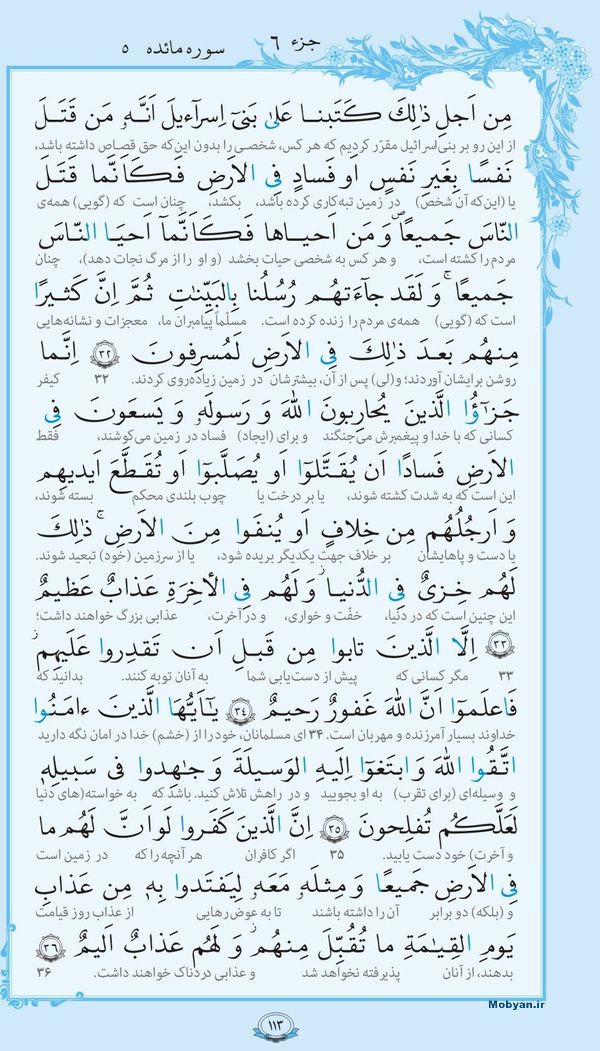 جزء ۶
سوره مائده ۵
مِن اَجلِ ذٰلِكَ كَتَبنا عَلىٰ بَنىٓ اِسرآءيلَ اَنَّهٗ مَن قَتَلَ
از این رو بر بنی‌اسرائیل مقرّر کردیم که هر کس، شخصی را بدون این‌که حق قصاص داشته باشد،
نَفسًا بِغَيرِ نَفسٍ اَو فَسادٍ فِى الاَرضِ فَكَاَنَّما قَتَلَ
یا (این‌که آن شخص) در زمین تبه‌کاری کرده باشد، بکشد، چنان است که (گویی) همه‌ی
النّاسَ جَميعًا ۖ وَ مَن اَحياها فَكَاَنَّمآ اَحيَا النّاسَ
مردم را کشته است، و هر کس به شخصی حیات بخشد (و او را از مرگ نجات دهد)، چنان
جَميعًا ۚ وَ لَقَد جآءَتهُم رُسُلُنا بِالبَيِّنٰتِ ثُمَّ اِنَّ كَثيرًا
است که (گویی) همه‌ی مردم را زنده کرده است. مسلّماً پیامبران ما، معجزات و نشانه‌هایی
مِنهُم بَعدَ ذٰلِكَ فِى الاَرضِ لَمُسرِفونَ ﴿۳۲﴾ اِنَّما
روشن برایشان آوردند؛ و(لی) پس از آن، بیشترشان در زمین زیاده‌روی کردند. ۳۲ کیفر
جَزٰٓؤُا الَّذينَ يُحارِبونَ اللهَ وَ رَسولَهٗ وَ يَسعَونَ فِى
کسانی که با خدا و پیغمبرش می‌جنگند و برای (ایجاد) فساد در زمین می‌کوشند، فقط
الاَرضِ فَسادًا اَن يُقَتَّلوٓا اَو يُصَلَّبوٓا اَو تُقَطَّعَ اَيديهِم
این است که به شدت کشته شوند، یا بر درخت یا چوب بلندی محکم بسته شوند،
وَ اَرجُلُهُم مِن خِلافٍ اَو يُنفَوا مِنَ الاَرضِ ۚ ذٰلِكَ
یا دست و پاهایشان بر خلاف جهت یکدیگر بریده شود، یا از سرزمین (خود) تبعید شوند.
لَهُم خِزىٌ فِى الدُّنيا ۖ وَ لَهُم فِى الأٰخِرَةِ عَذابٌ عَظيمٌ
این چنین است که در دنیا، خفّت و خواری، و در آخرت، عذابی بزرگ خواهند داشت؛
﴿۳۳﴾ اِلَّا الَّذينَ تابوا مِن قَبلِ اَن تَقدِروا عَلَيهِم ۖ
۳۳ مگر کسانی که پیش از دست‌یابی شما به آنان توبه کنند. بدانید که
فَاعلَموٓا اَنَّ اللهَ غَفورٌ رَحيمٌ ﴿۳۴﴾ يٰٓاَيُّهَا الَّذينَ ءامَنُوا
خداوند بسیار آمرزنده و مهربان است. ۳۴ ای مسلمانان، خود را از (خشم) خدا در امان نگه دارید
اتَّقُوا اللهَ وَ ابتَغوٓا اِلَيهِ الوَسيلَةَ وَ جٰهِدوا فى سَبيلِهٖ
و وسیله‌ای (برای تقرب) به او بجویید و در راهش تلاش کنید. باشد که به خواسته(های دنیا
لَعَلَّكُم تُفلِحونَ ﴿۳۵﴾ اِنَّ الَّذينَ كَفَروا لَو اَنَّ لَهُم ما
و آخرت) خود دست یابید. ۳۵ اگر کافران هر آنچه را که در زمین است
فِى الاَرضِ جَميعًا وَ مِثلَهٗ مَعَهٗ لِيَفتَدوا بِهٖ مِن عَذابِ
و (بلکه) دو برابر آن را داشته باشند تا به عوض رهایی از عذاب روز قیامت
يَومِ القِيٰمَةِ ما تُقُبِّلَ مِنهُم ۖ وَ لَهُم عَذابٌ اَليمٌ ﴿۳۶﴾
بدهند، از آنان پذیرفته نخواهد شد و عذابی دردناک خواهند داشت. ۳۶
Mobyan.ir
۱۱۳